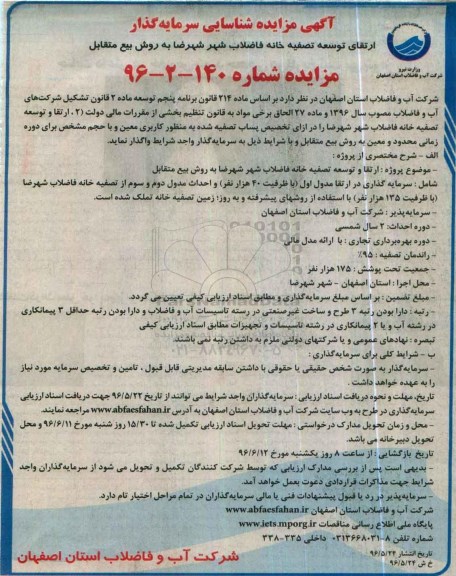 آگهی مزایده شناسایی سرمایه‌گذار
ارتقای توسعه تصفیه خانه فاضلاب شهر شهرضا به روش بیع متقابل
مزایده شماره ۱۴۰-۲-۹۶
وزارت نیرو
شرکت آب و فاضلاب استان اصفهان
شرکت آب و فاضلاب استان اصفهان در نظر دارد بر اساس ماده ۲۱۴ قانون برنامه پنجم توسعه ماده ۲ قانون تشکیل شرکت‌های
آب و فاضلاب مصوب سال ۱۳۹۶ و ماده ۲۷ الحاق برخی مواد به قانون تنظیم بخشی از مقررات مالی دولت (۲)، ارتقا و توسعه
تصفیه خانه فاضلاب شهر شهرضا را در ازای تخصیص پساب تصفیه شده به منظور کاربری معین و با حجم مشخص برای دوره
زمانی محدود و معین به روش بیع متقابل و با شرایط ذیل به سرمایه‌گذار واجد شرایط واگذار نماید.
الف - شرح مختصری از پروژه :
- موضوع پروژه : ارتقا و توسعه تصفیه خانه فاضلاب شهر شهرضا به روش بیع متقابل
شامل : سرمایه گذاری در ارتقا مدول اول (با ظرفیت ۴۰ هزار نفر) و احداث مدول دوم و سوم از تصفیه خانه فاضلاب شهرضا
(با ظرفیت ۱۳۵ هزار نفر) با استفاده از روشهای پیشرفته و به روز؛ زمین تصفیه خانه تملک شده است.
- سرمایه‌پذیر : شرکت آب و فاضلاب استان اصفهان
- دوره احداث: ۲ سال شمسی
- دوره بهره‌برداری تجاری : با ارائه مدل مالی
- راندمان تصفیه : ۹۵٪
- جمعیت تحت پوشش : ۱۷۵ هزار نفر
- محل اجرا : استان اصفهان - شهر شهرضا
- مبلغ تضمین : بر اساس مبلغ سرمایه‌گذاری و مطابق اسناد ارزیابی کیفی تعیین می گردد.
- رتبه : دارا بودن رتبه ۳ طرح و ساخت غیرصنعتی در رسته تاسیسات آب و فاضلاب و دارا بودن رتبه حداقل ۳ پیمانکاری
در رشته آب و یا ۲ پیمانکاری در رشته تاسیسات و تجهیزات مطابق اسناد ارزیابی کیفی
تبصره : نهادهای عمومی و یا شرکتهای دولتی ملزم به داشتن رتبه نمی باشند.
ب - شرایط کلی برای سرمایه‌گذاری :
- سرمایه‌گذار به صورت شخص حقیقی یا حقوقی با داشتن سابقه مدیریتی قابل قبول ، تامین و تخصیص سرمایه مورد نیاز
را به عهده خواهد داشت .
تاریخ، مهلت و نحوه دریافت اسناد ارزیابی : سرمایه‌گذاران واجد شرایط می توانند از تاریخ ۹۶/۵/۲۲ جهت دریافت اسناد ارزیابی
سرمایه‌گذاری در طرح به وب سایت شرکت آب و فاضلاب استان اصفهان به آدرس www.abfaesfahan.ir مراجعه نمایند.
- محل و زمان تحویل مدارک درخواستی : مهلت تحویل اسناد ارزیابی تکمیل شده تا ۱۵/۳۰ روز شنبه مورخ ۹۶/۶/۱۱ و محل
تحویل دبیرخانه می باشد.
تاریخ بازگشایی : از ساعت ۸ روز یکشنبه مورخ ۹۶/۶/۱۲
- بدیهی است پس از بررسی مدارک ارزیابی که توسط شرکت کنندگان تکمیل و تحویل می شود از سرمایه‌گذاران واجد
شرایط جهت مذاکرات قراردادی دعوت بعمل خواهد آمد.
- سرمایه‌پذیر در رد یا قبول پیشنهادات فنی یا مالی سرمایه‌گذاران در تمام مراحل اختیار تام دارد.
شرکت آب و فاضلاب استان اصفهان www.abfaesfahan.ir
پایگاه ملی اطلاع رسانی مناقصات www.iets.mporg.ir
شماره تلفن ۸-۰۳۱۳۶۶۸۰۳۱ داخلی ۳۳۵-۳۳۸
تاریخ انتشار ۹۶/۵/۲۴
خ ش ۹۶/۵/۲۴
شرکت آب و فاضلاب استان اصفهان